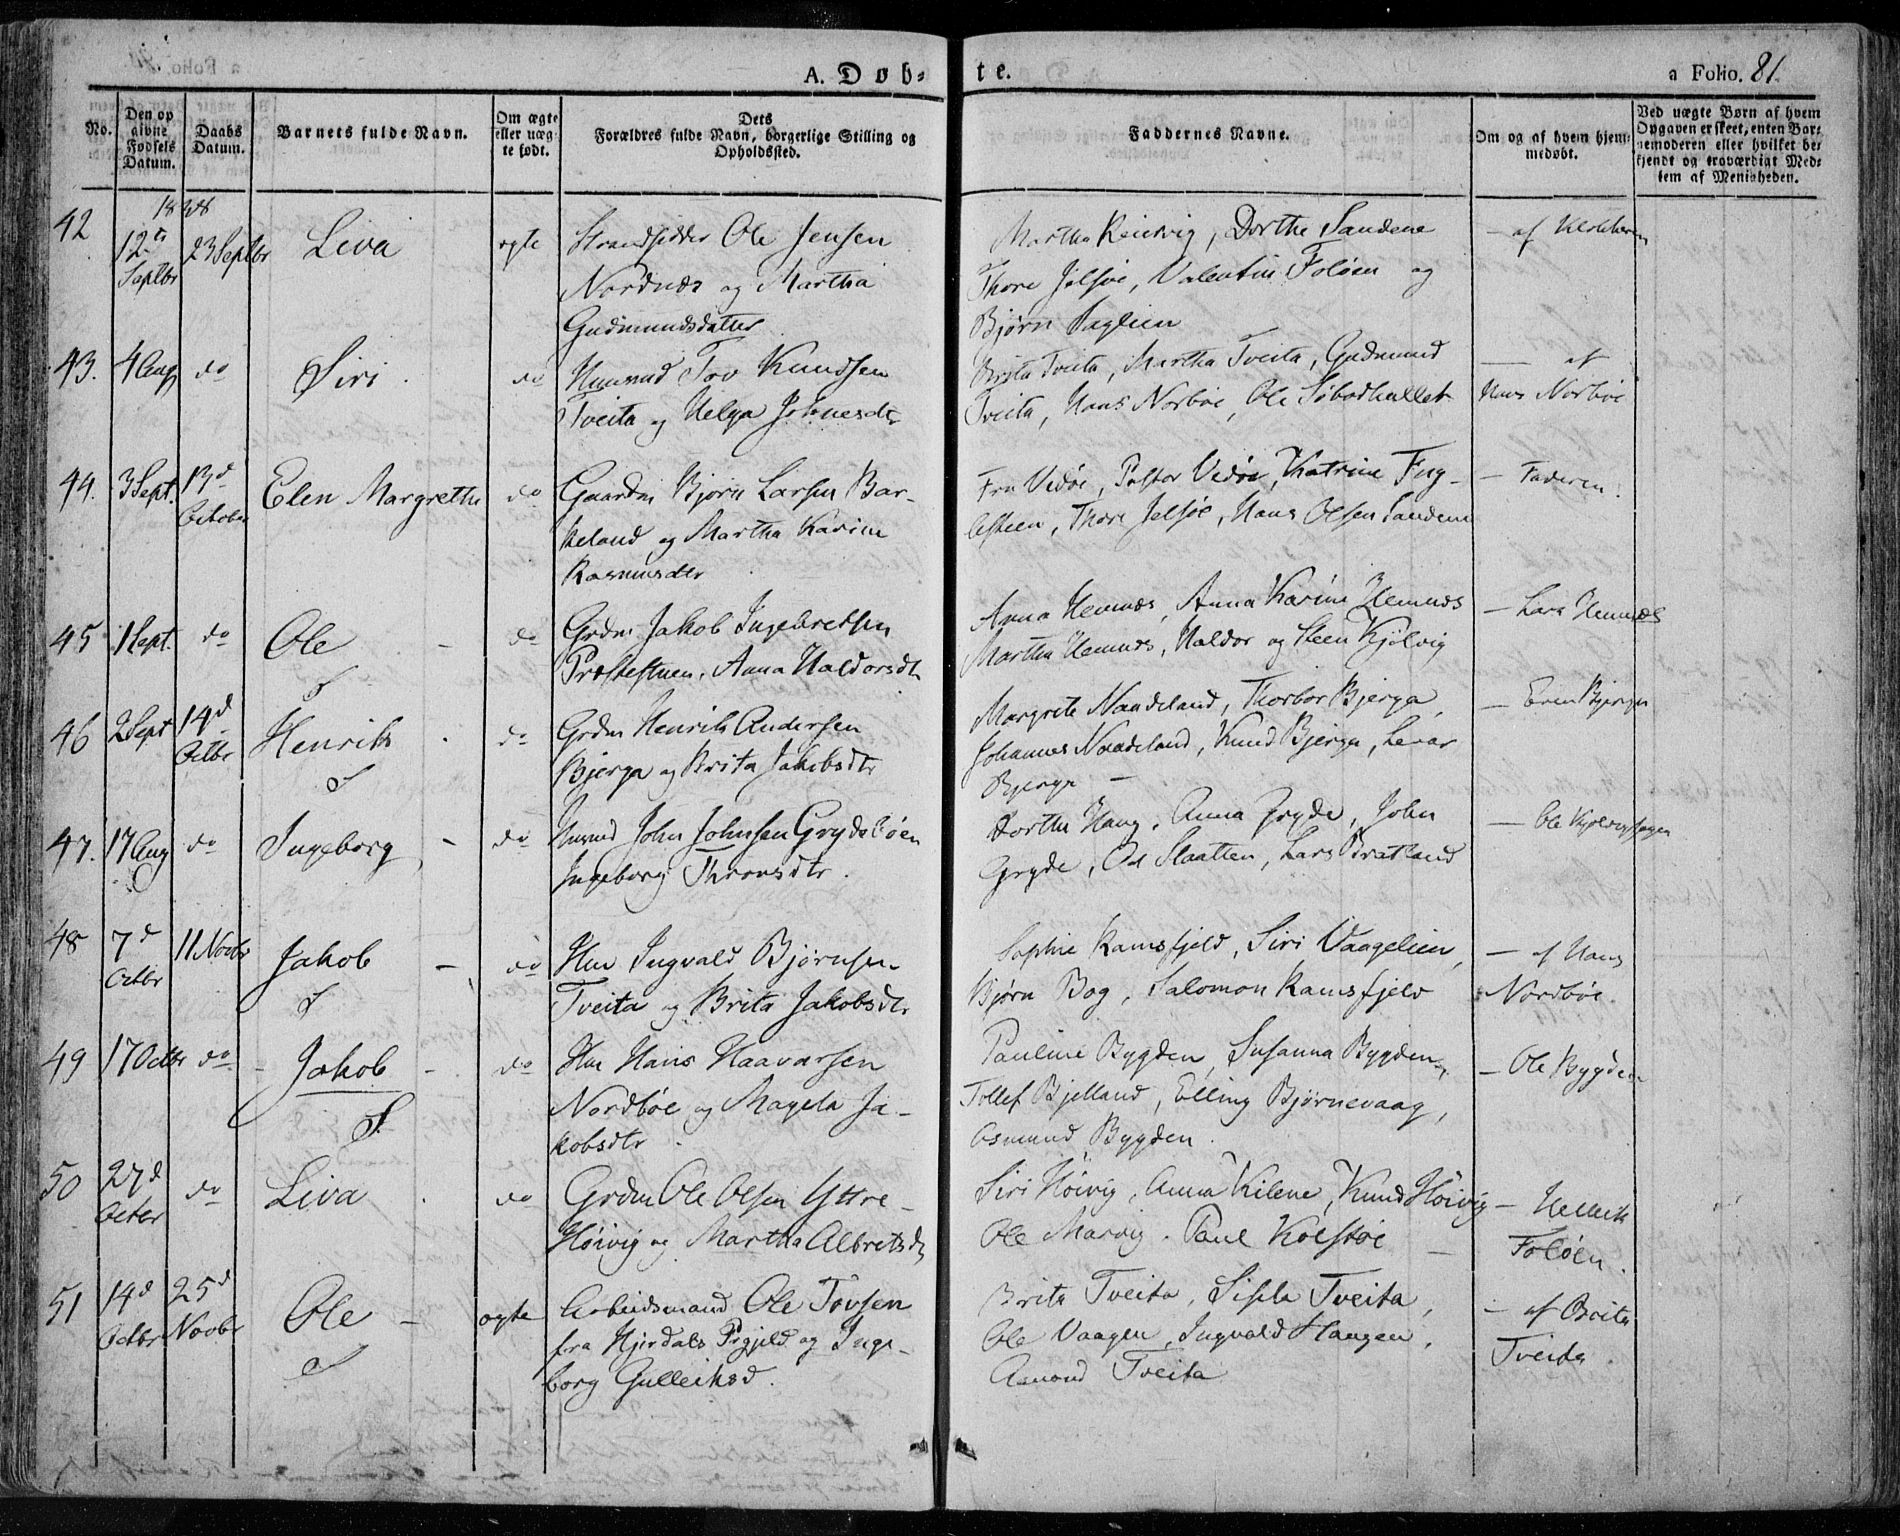 A. Døb-
te.
a Folio. 81.
No.
Den op
givne
Fødsels
Datum.
Daabs
Datum.
Barnets fulde Navn.
Om ægte
eller uæg-
te født.
Dets
Forældres fulde Navn, borgerlige Stilling og
Opholdssted.
Faddernes Navne.
Om og af hvem hjem-
medøbt.
Ved uægte Børn af hvem
Opgaven er skeet, enten Bar-
nemoderen eller hvilket be-
kjendt og troværdigt Med-
lem af Menigheden.
42
12te
Septbr
23 Septbr
Liva
ægte
Strandsidder Ole Jensen
Nordnæs og Martha
Gudmundsdatter
Martha Reinvig, Dorthe Sandene
Thore Jelsøe, Valentin Foløen og
Bjørn
— af Klokkeren
43. 4 Aug do Siri do
Huusmd Tov Knudsen
Tveita og Helga Johnesdr
Brita Tveita, Martha Tveita, Gudmund
Tveita, Hans Norbøe, Ole
— af
Hans Norbøe
44. 3 Sept. 13d
Octobr
Elen Margrethe do
Gaardm Bjørn Larsen Bar-
keland og Martha Karine
Rasmusdtr
Fru Vidøe, Pastor Vidøe, Katrine Fug-
lesteen, Thore Jelsøe, Hans Olsen Sandene
— Faderen.
45 1 Sept. do Ole - do
Grdm Jakob Ingebretsen
Præstestuen, Anna Haldorsdtr
Anna Hemnæs, Anna Karine Hemnæs
Martha Hemnæs, Haldor og Steen Kjölvig
— Lars Hemnæs
46 2 Sept 14d
Octbr
Henrik do
Grdm Henrik Andersen
Bjerga og Brita Jakobsdtr
Margrete Naadeland, Thorbor Bjerga,
Johannes Naadeland, Knud Bjerga,
Bjerga —
— Even Bjerga
47. 17 Aug do Ingeborg - do
Huusmd John Johnsen Grydebøen
Ingeborg Thronsdtr.
Dorthe Haug, Anna Gryde, John
Gryde, Od Slaatten, Lars Bratland
— Ole
48 7d
Octbr
11 Novbr Jakob - do
Hm Ingvald Bjørnsen
Tveita og Brita Jakobsdtr
Sophie Ramsfjeld, Siri Vaagelien,
Bjørn Bog, Salomon Ramsfjeld
— af Hans
Nordbøe.
49 17 Octbr do - Jakob - do
Hm Hans Haavarsen
Nordbøe og Magela Ja-
kobsdtr.
Pauline Bygden, Susanna Bygden,
Tollef Bjelland, Elling Bjørnevaag,
Osmund Bygden.
— Ole Bygden
50 27d
Octbr
do Liva . do
Grdm Ole Olsen Yttre
Höivig og Martha Albretsdtr
Siri Höivig, Anna Kilene, Knud Höivig
Ole Marvig. Paul Kolstøe —
— Hellek
Foløen.
51 14d
Octbr
25d
Novbr
Ole - ægte
Arbeidsmand Ole Tovsen
fra Hjerdals Prgjeld og Inge-
borg Gulleiksd.
Brita Tveita, Sissla Tveita,
Ole Vaagen, Ingvald Haugen,
Asmond Tveita
— af Brita
Tveita.